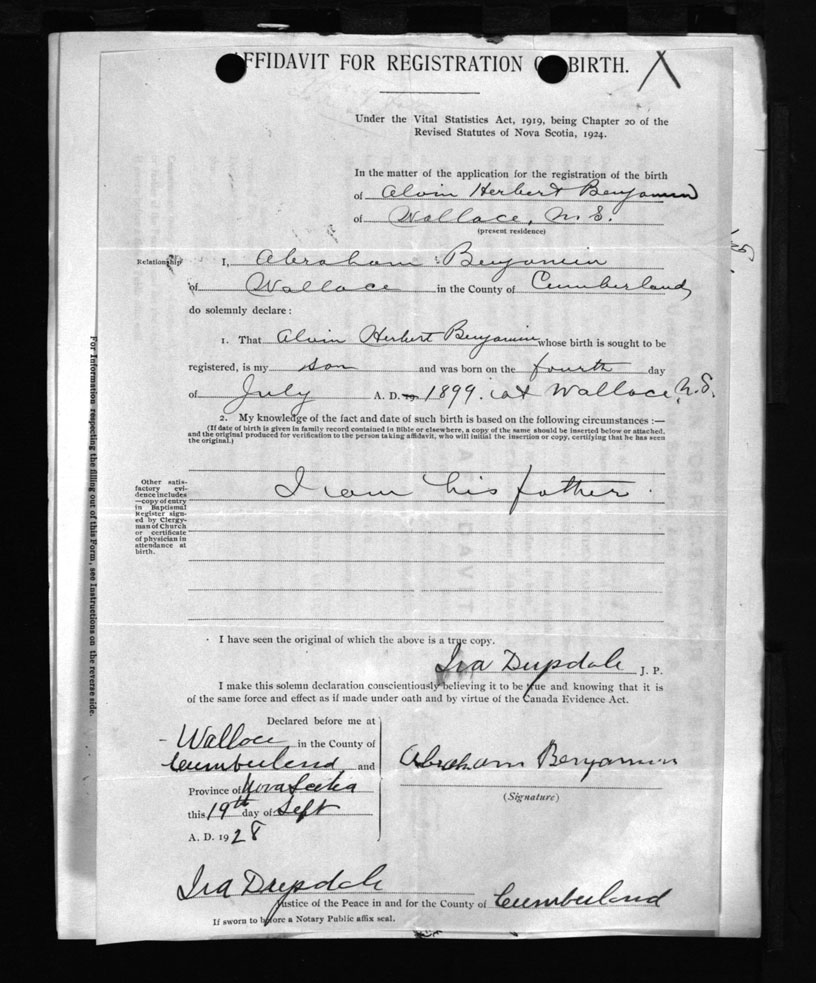 AFFIDAVIT FOR REGISTRATION OF BIRTH.
Under the Vital Statistics Act, 1919, being Chapter 20 of the
Revised Statutes of Nova Scotia, 1924.
In the matter of the application for the registration of the birth
of Alvin Herbert Benjamin
of Wallace, N.S.
(present residence)
Relationship
I, Abraham Benjamin
of Wallace in the County of Cumberland,
do solemnly declare :
1. That Alvin Herbert Benjamin whose birth is sought to be
registered, is my son and was born on the fourth day
of July A. D. 19 1899. at Wallace, N.S.
2. My knowledge of the fact and date of such birth is based on the following circumstances :—
(If date of birth is given in family record contained in Bible or elsewhere, a copy of the same should be inserted below or attached,
and the original produced for verification to the person taking affidavit, who will initial the insertion or copy, certifying that he has seen
the original.)
Other satis-
factory evi-
dence includes
—copy of entry
in Baptismal
Register sign-
ed by Clergy-
man of Church
or certificate
of physician in
attendance at
birth.
I am his father.
For Information respecting the filling out of this Form, see Instructions on the reverse side.
I have seen the original of which the above is a true copy.
Ira Drysdale J. P.
I make this solemn declaration conscientiously believing it to be true and knowing that it is
of the same force and effect as if made under oath and by virtue of the Canada Evidence Act.
Declared before me at
Wallace in the County of
Cumberland and
Province of Nova Scotia
this 19th day of Sept
A. D. 1928
Abraham Benjamin
(Signature)
Ira Drysdale
Justice of the Peace in and for the County of Cumberland
If sworn to before a Notary Public affix seal.